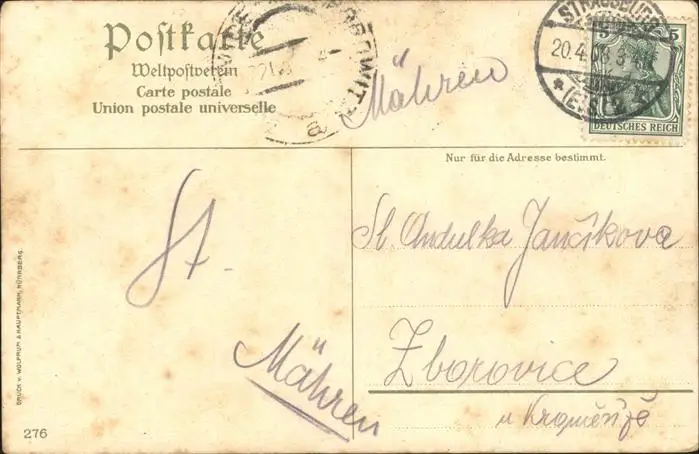 Postkarte
Weltpostverein
Carte postale
Union postale universelle
Mähren
STRASSBURG
20.4.08. 3-4
* (ELS.)
5 5
DEUTSCHES REICH
Nur für die Adresse bestimmt.
St.
Sl. Andulka Jančíkova
Zborovice
u Kroměříže
Mähren
DRUCK v. WOLFRUM & HAUPTMANN, NÜRNBERG.
276